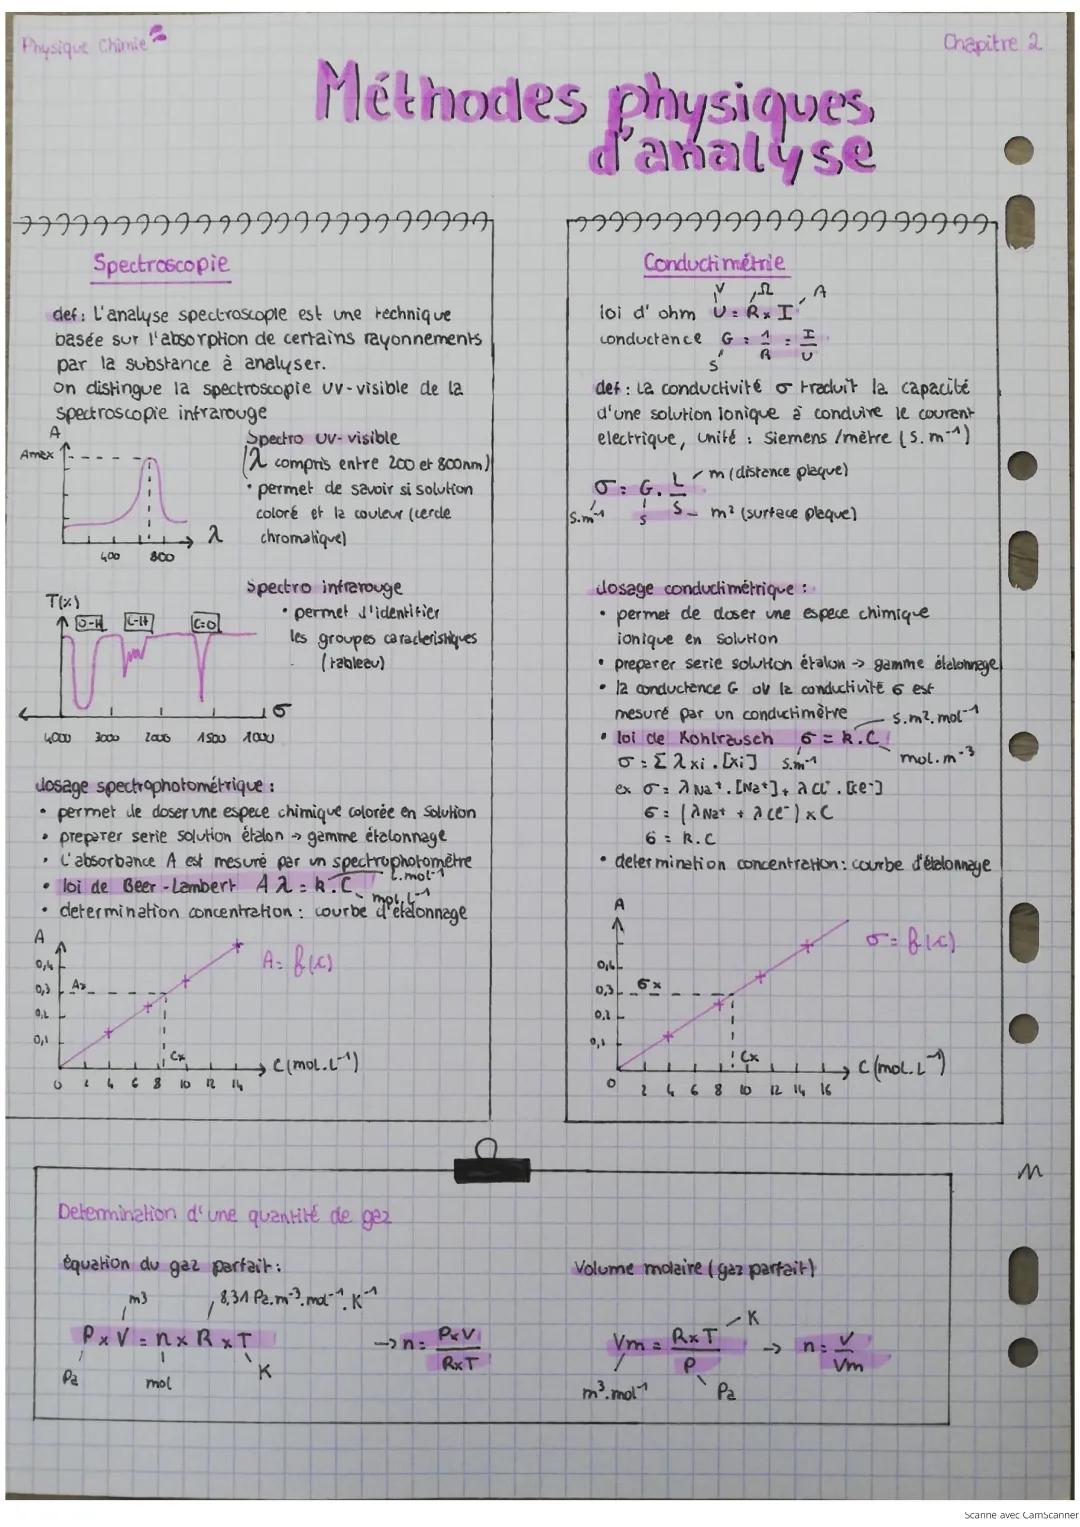 Physique Chimie
Chapitre 2
Méthodes physiques
d'analyse
Spectroscopie
def: L'analyse spectroscopie est une technique
basée sur l'absorption de certains rayonnements
par la substance à analyser.
on distingue la spectroscopie UV-visible de la
spectroscopie infrarouge
A
Amax
400 800
λ
Spectro UV-visible
(λ compris entre 200 et 800nm)
• permet de savoir si solution
coloré et la couleur (cercle
chromatique)
T(%)
O-H C-H C=O
σ
4000 3000 2000 1500 1000
Spectro infrarouge
• permet d'identifier
les groupes caracteristiques
(tableau)
dosage spectrophotométrique :
• permet de doser une espece chimique colorée en solution
• preparer serie solution étalon -> gamme étalonnage
• L'absorbance A est mesuré par un spectrophotomètre
• loi de Beer-Lambert Aλ = k.C L.mol⁻¹
mol.L⁻¹
• determination concentration : courbe d'étalonnage
A
0,4
0,3 Ax
0,2
0,1
A = f(c)
Cx
C (mol.L⁻¹)
0 2 4 6 8 10 12 14
Conductimétrie
V Ω A
loi d'ohm U = R x I
conductance G = 1/R = I/U
S
def : La conductivité σ traduit la capacité
d'une solution ionique à conduire le courant
electrique, unité : Siemens/mètre (S.m⁻¹)
σ = G. L/S
m (distance plaque)
S.m⁻¹ S m² (surface plaque)
dosage conductimétrique :
• permet de doser une espece chimique
ionique en solution
• preparer serie solution étalon -> gamme étalonnage
• la conductance G ou la conductivité σ est
mesuré par un conductimètre
S.m².mol⁻¹
• loi de Kohlrausch σ = k.C
σ = Σ λxi.[xi] S.m⁻¹ mol.m⁻³
ex σ = λNa⁺.[Na⁺] + λCl⁻.[Cl⁻]
σ = (λNa⁺ + λCl⁻) x C
σ = k.C
• determination concentration : courbe d'étalonnage
A
0,4
0,3 σx
0,2
0,1
σ = f(c)
Cx
C (mol.L⁻¹)
0 2 4 6 8 10 12 14 16
Determination d'une quantité de gaz
équation du gaz parfait :
m3 8,31 Pa.m⁻³.mol⁻¹.K⁻¹
P x V = n x R x T
Pa mol K
-> n = PxV/RxT
Volume molaire (gaz parfait)
Vm = RxT/P
K
m³.mol⁻¹ Pa
-> n = V/Vm
Scanné avec CamScanner